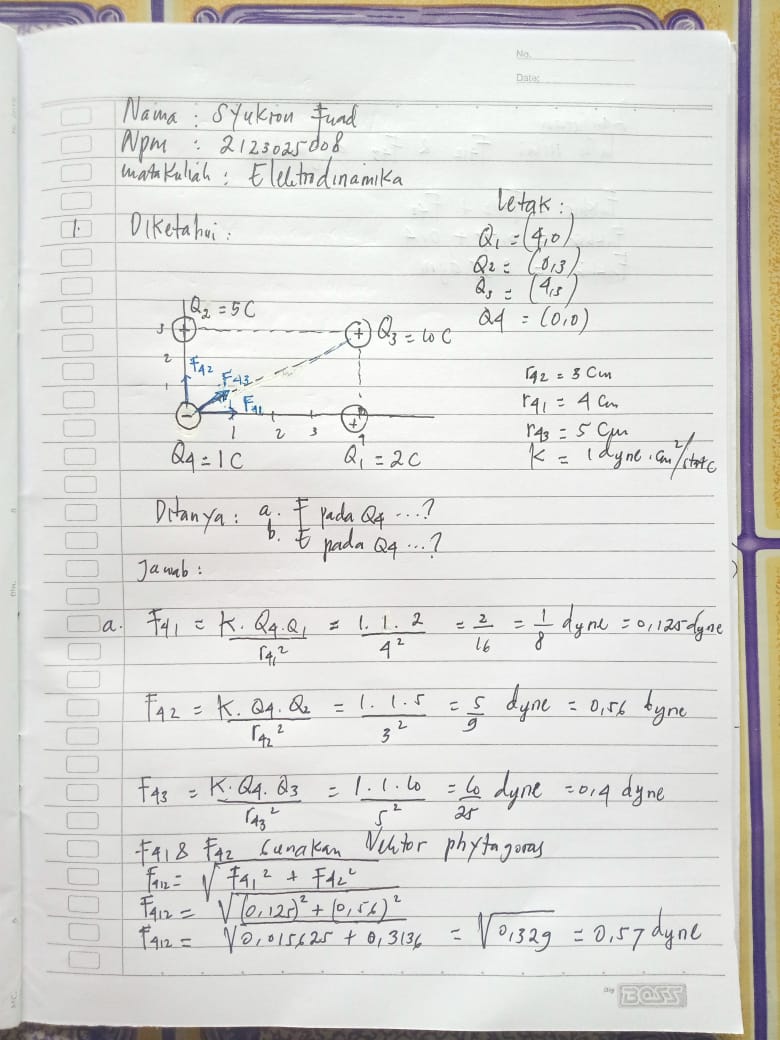 No.
Date:
Nama : Syukron Fuad
Npm : 2123025008
matakuliah : Elektrodinamika
1. Diketahui :
Letak :
Q1 = (4,0)
Q2 = (0,3)
Q3 = (4,3)
Q4 = (0,0)
Q2 = 5C
Q3 = 10 C
3
2
1
F42
F43
F41
1 2 3 4
Q4 = 1 C
Q1 = 2 C
r42 = 3 Cm
r41 = 4 Cm
r43 = 5 Cm
K = 1 dyne . cm²/statC
Ditanya : a. F pada Q4 ...?
b. E pada Q4 ...?
Jawab :
a. F41 = K. Q4. Q1 / r41² = 1. 1. 2 / 4² = 2/16 = 1/8 dyne = 0,125 dyne
F42 = K. Q4. Q2 / r42² = 1. 1. 5 / 3² = 5/9 dyne = 0,56 byne
F43 = K. Q4. Q3 / r43² = 1. 1. 10 / 5² = 10/25 dyne = 0,4 dyne
F41 & F42 Gunakan Vektor phytagoras
F412 = √F41² + F42²
F412 = √(0,125)² + (0,56)²
F412 = √0,015625 + 0,3136 = √0,329 = 0,57 dyne
BOSS